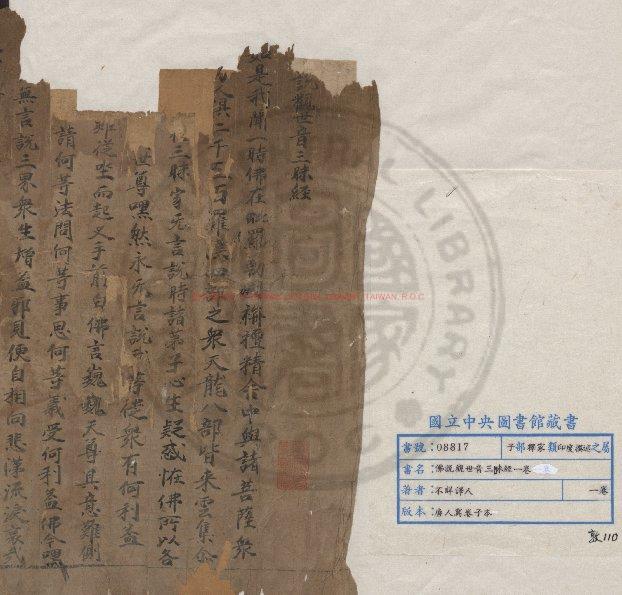 說觀世音三昧經
是我聞一時佛在毗羅勒𣐀栴檀精舍中與諸菩薩衆
人俱二千二百羅漢四部之衆天龍八部皆來雲集佘
三昧寂无言說時諸弟子心生疑惑恠佛所以各
世尊嘿然永无言說等徒衆有何利益
即從坐而起叉手前白佛言巍巍天尊其意難惻
請何等法問何等事思何等義受何利益佛今嘿
無言說三界衆生增益邪見便自相向悲涕流淚哀
國立中央圖書館藏書
書號：08817 子部釋家類印度撰述之屬
書名：佛說觀世音三昧經一卷
著者：不詳譯人 一卷
版本：唐人寫卷子本
敦110
LIBRARY
TAIWAN, R.O.C